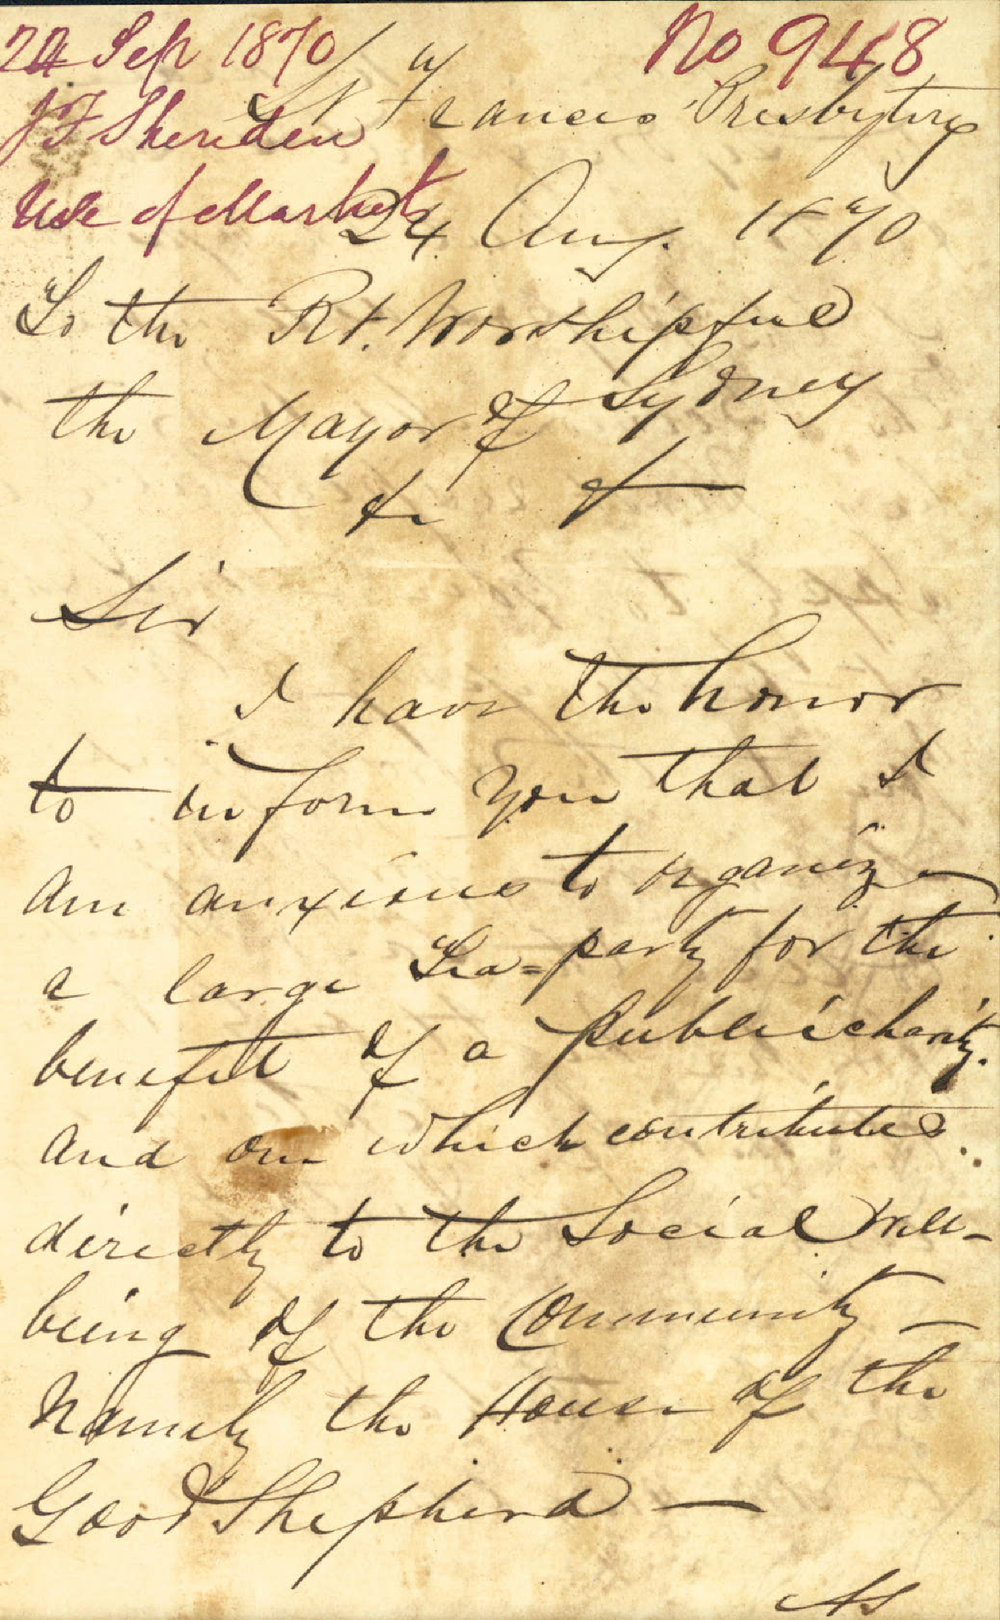 Sep 1870
No 948
St Francis' Presbytery
J F Sheridan
Use of Market
24 Aug. 1870
To the Rt. Worshipful
the Mayor of Sydney
&c &c
Sir
I have the honor
to inform you that I
am anxious to organize
a large Tea=party for the
benefit of a public charity.
and one which contributes
directly to the Social well-
being of the Community —
Namely the House of the
Good Shepherd —
As